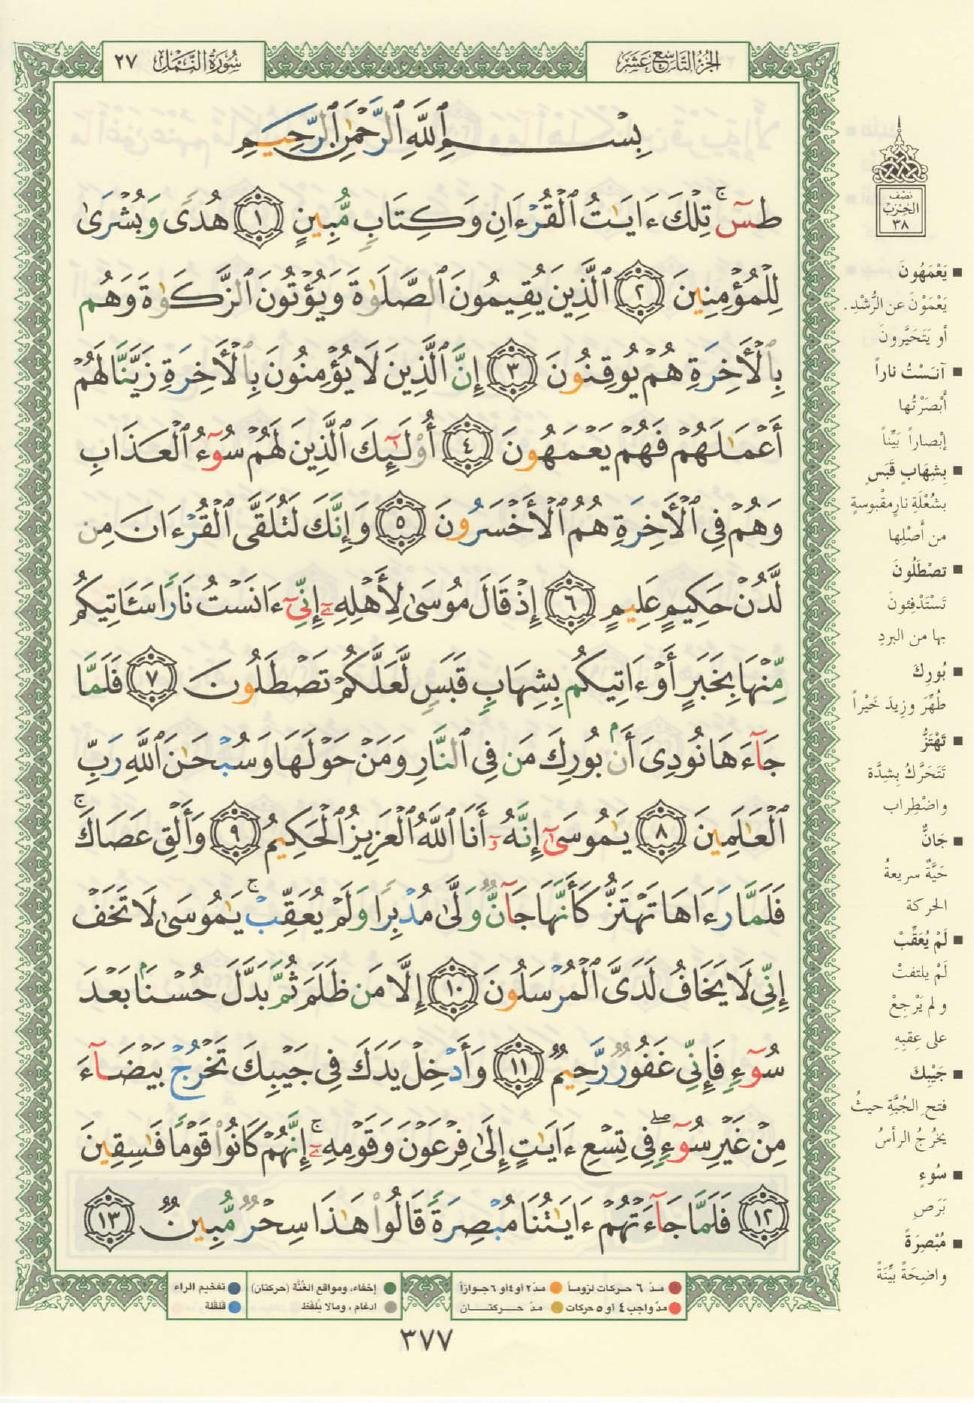 سُورَةُ النَّمْلِ ٢٧
الجُزْءُ التَّاسِعُ عَشَرَ
بِسْمِ ٱللَّهِ ٱلرَّحْمَٰنِ ٱلرَّحِيمِ
طسٓ ۚ تِلْكَ ءَايَٰتُ ٱلْقُرْءَانِ وَكِتَابٍ مُّبِينٍ ١ هُدًى وَبُشْرَىٰ
لِلْمُؤْمِنِينَ ٢ ٱلَّذِينَ يُقِيمُونَ ٱلصَّلَوٰةَ وَيُؤْتُونَ ٱلزَّكَوٰةَ وَهُم
بِٱلْأَخِرَةِ هُمْ يُوقِنُونَ ٣ إِنَّ ٱلَّذِينَ لَا يُؤْمِنُونَ بِٱلْأَخِرَةِ زَيَّنَّا لَهُمْ
أَعْمَٰلَهُمْ فَهُمْ يَعْمَهُونَ ٤ أُو۟لَٰٓئِكَ ٱلَّذِينَ لَهُمْ سُوٓءُ ٱلْعَذَابِ
وَهُمْ فِى ٱلْأَخِرَةِ هُمُ ٱلْأَخْسَرُونَ ٥ وَإِنَّكَ لَتُلَقَّى ٱلْقُرْءَانَ مِن
لَّدُنْ حَكِيمٍ عَلِيمٍ ٦ إِذْ قَالَ مُوسَىٰ لِأَهْلِهِۦٓ إِنِّىٓ ءَانَسْتُ نَارًا سَـَٔاتِيكُم
مِّنْهَا بِخَبَرٍ أَوْ ءَاتِيكُم بِشِهَابٍ قَبَسٍ لَّعَلَّكُمْ تَصْطَلُونَ ٧ فَلَمَّا
جَآءَهَا نُودِىَ أَنۢ بُورِكَ مَن فِى ٱلنَّارِ وَمَنْ حَوْلَهَا وَسُبْحَٰنَ ٱللَّهِ رَبِّ
ٱلْعَٰلَمِينَ ٨ يَٰمُوسَىٰٓ إِنَّهُۥٓ أَنَا ٱللَّهُ ٱلْعَزِيزُ ٱلْحَكِيمُ ٩ وَأَلْقِ عَصَاكَ ۚ
فَلَمَّا رَءَاهَا تَهْتَزُّ كَأَنَّهَا جَآنٌّ وَلَّىٰ مُدْبِرًا وَلَمْ يُعَقِّبْ ۚ يَٰمُوسَىٰ لَا تَخَفْ
إِنِّى لَا يَخَافُ لَدَىَّ ٱلْمُرْسَلُونَ ١٠ إِلَّا مَن ظَلَمَ ثُمَّ بَدَّلَ حُسْنًۢا بَعْدَ
سُوٓءٍ فَإِنِّى غَفُورٌ رَّحِيمٌ ١١ وَأَدْخِلْ يَدَكَ فِى جَيْبِكَ تَخْرُجْ بَيْضَآءَ
مِنْ غَيْرِ سُوٓءٍ ۖ فِى تِسْعِ ءَايَٰتٍ إِلَىٰ فِرْعَوْنَ وَقَوْمِهِۦٓ ۚ إِنَّهُمْ كَانُوا۟ قَوْمًا فَٰسِقِينَ
١٢ فَلَمَّا جَآءَتْهُمْ ءَايَٰتُنَا مُبْصِرَةً قَالُوا۟ هَٰذَا سِحْرٌ مُّبِينٌ ١٣
نِصْف
الحِزْبْ
٣٨
يَعْمَهُونَ
يَعْمَوْنَ عن الرُّشْدِ.
أو يَتَحَيَّرونَ
آنَسْتُ ناراً
أَبْصَرْتُها
إبْصاراً بَيِّناً
بِشِهَابٍ قَبَسٍ
بشُعْلَةِ نارٍ مقْبوسةٍ
من أَصْلِها
تصْطَلُونَ
تَسْتَدْفِئونَ
بها من البردِ
بُورِكَ
طُهِّرَ وزِيدَ خَيْراً
تَهْتَزُّ
تَتَحَرَّكُ بِشِدَّة
واضْطِراب
جَانٌّ
حَيَّةٌ سريعةُ
الحركة
لَمْ يُعَقِّبْ
لَمْ يلتفتْ
ولم يَرْجِعْ
على عقِبِهِ
جَيْبِكَ
فتحِ الجُبَّةِ حيثُ
يخرُجُ الرأسُ
سُوءٍ
بَرَصٍ
مُبْصِرَةً
واضِحَةً بيِّنَةً
مدّ ٦ حركات لزوماً مدّ ٢ أو ٤ أو ٦ جوازاً إخفاء، ومواقع الغُنَّة (حركتان) تفخيم الراء
مدّ واجب ٤ أو ٥ حركات مدّ حركتان ادغام، ومالا يُلفَظ قلقلة
٣٧٧